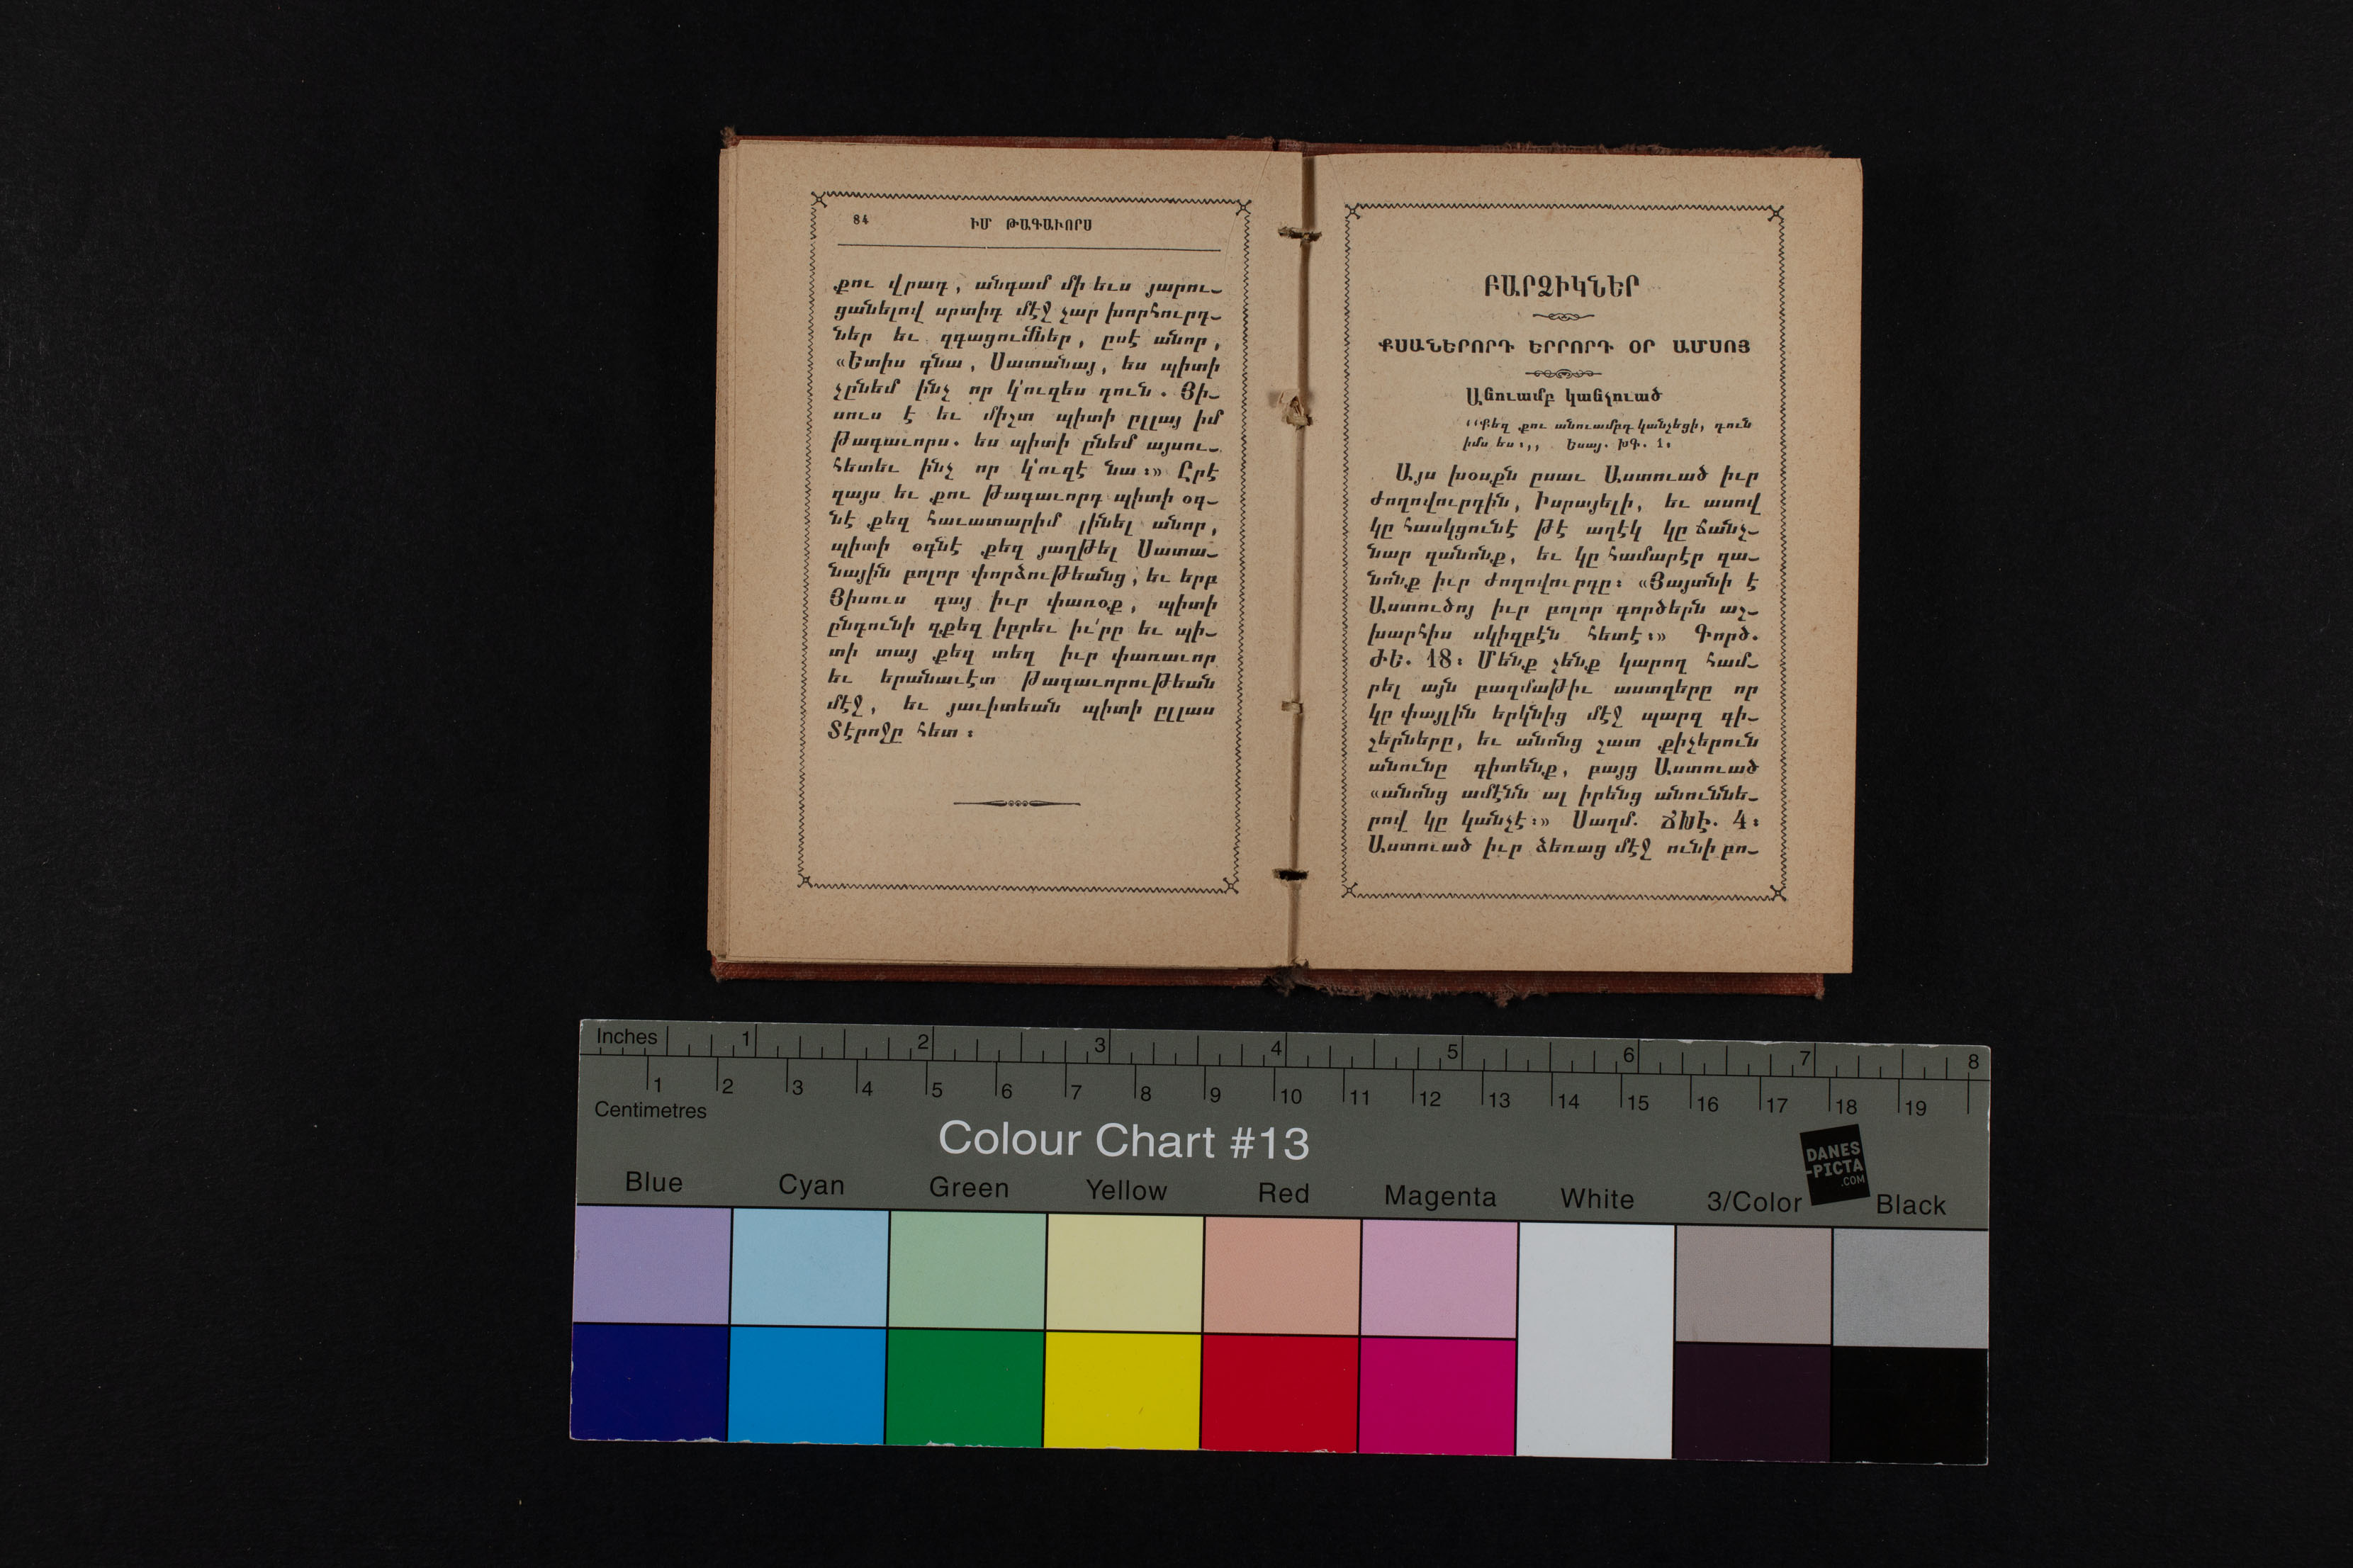 84 ԻՄ ԹԱԳԱՒՈՐՍ
քու վրադ, անգամ մի եւս յարու-
ցանելով սրտիդ մէջ չար խորհուրդ-
ներ եւ զգացումներ, ըսէ անոր,
«Ետիս գնա, Սատանայ, ես պիտի
չընեմ ինչ որ կ՚ուզես դուն. Յի-
սուս է եւ միշտ պիտի ըլլայ իմ
Թագաւորս. ես պիտի ընեմ այսու-
հետեւ ինչ որ կ՚ուզէ նա։» Ըրէ
զայս եւ քու Թագաւորդ պիտի օգ-
նէ քեզ հաւատարիմ լինել անոր,
պիտի օգնէ քեզ յաղթել Սատա-
նային բոլոր փորձութեանց, եւ երբ
Յիսուս գայ իւր փառօք, պիտի
ընդունի զքեզ իբրեւ իւ՛րը եւ պի-
տի տայ քեզ տեղ իւր փառաւոր
եւ երանաւէտ Թագաւորութեան
մէջ, եւ յաւիտեան պիտի ըլլաս
Տէրոջը հետ։
ԲԱՐՁԻԿՆԵՐ
ՔՍԱՆԵՐՈՐԴ ԵՐՐՈՐԴ ՕՐ ԱՄՍՈՅ
Անուամբ կանչուած
‘‘Քեզ քու անուամբդ կանչեցի, դուն
իմս ես։,, Եսայ. ԽԳ. 1։
Այս խօսքն ըսաւ Աստուած իւր
ժողովուրդին, Իսրայելի, եւ ասով
կը հասկցունէ թէ աղէկ կը ճանչ-
նար զանոնք, եւ կը համարէր զա-
նոնք իւր ժողովուրդը։ «Յայտնի է
Աստուծոյ իւր բոլոր գործերն աշ-
խարհիս սկիզբէն հետէ։» Գործ.
ԺԵ. 18։ Մենք չենք կարող համ-
րել այն բազմաթիւ աստղերը որ
կը փայլին երկնից մէջ պարզ գի-
շերները, եւ անոնց շատ քիչերուն
անունը գիտենք, բայց Աստուած
«անոնց ամէնն ալ իրենց անուննե-
րով կը կանչէ։» Սաղմ. ՃԽԷ. 4։
Աստուած իւր ձեռաց մէջ ունի բո-
Inches 1 2 3 4 5 6 7 8
1 2 3 4 5 6 7 8 9 10 11 12 13 14 15 16 17 18 19
Centimetres
Colour Chart #13
DANES
-PICTA
.COM
Blue Cyan Green Yellow Red Magenta White 3/Color Black